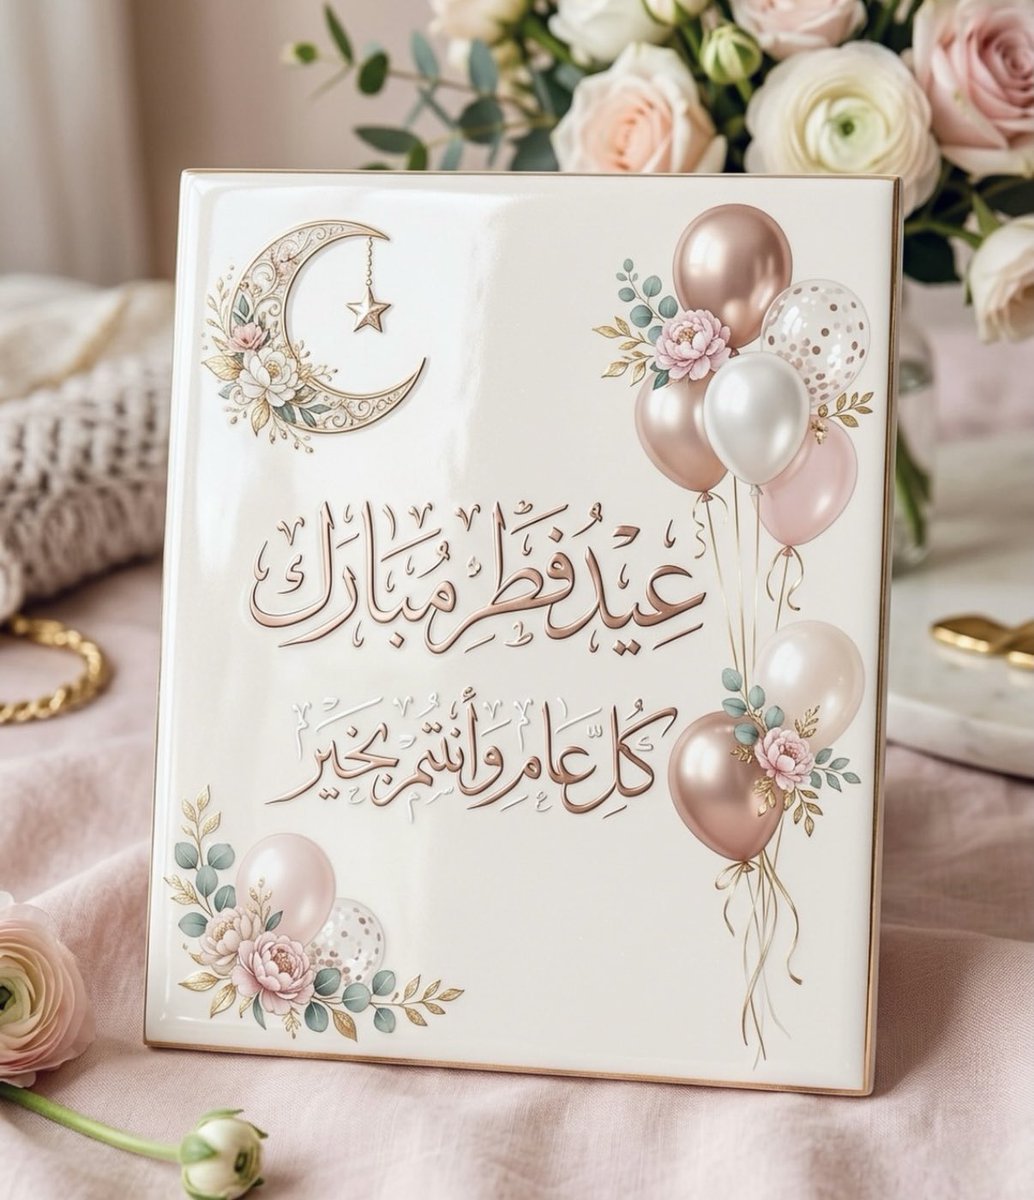 عِيدُ فِطْرٍ مُبَارَك
كُلّ عَام وَأَنْتُم بِخَيْر